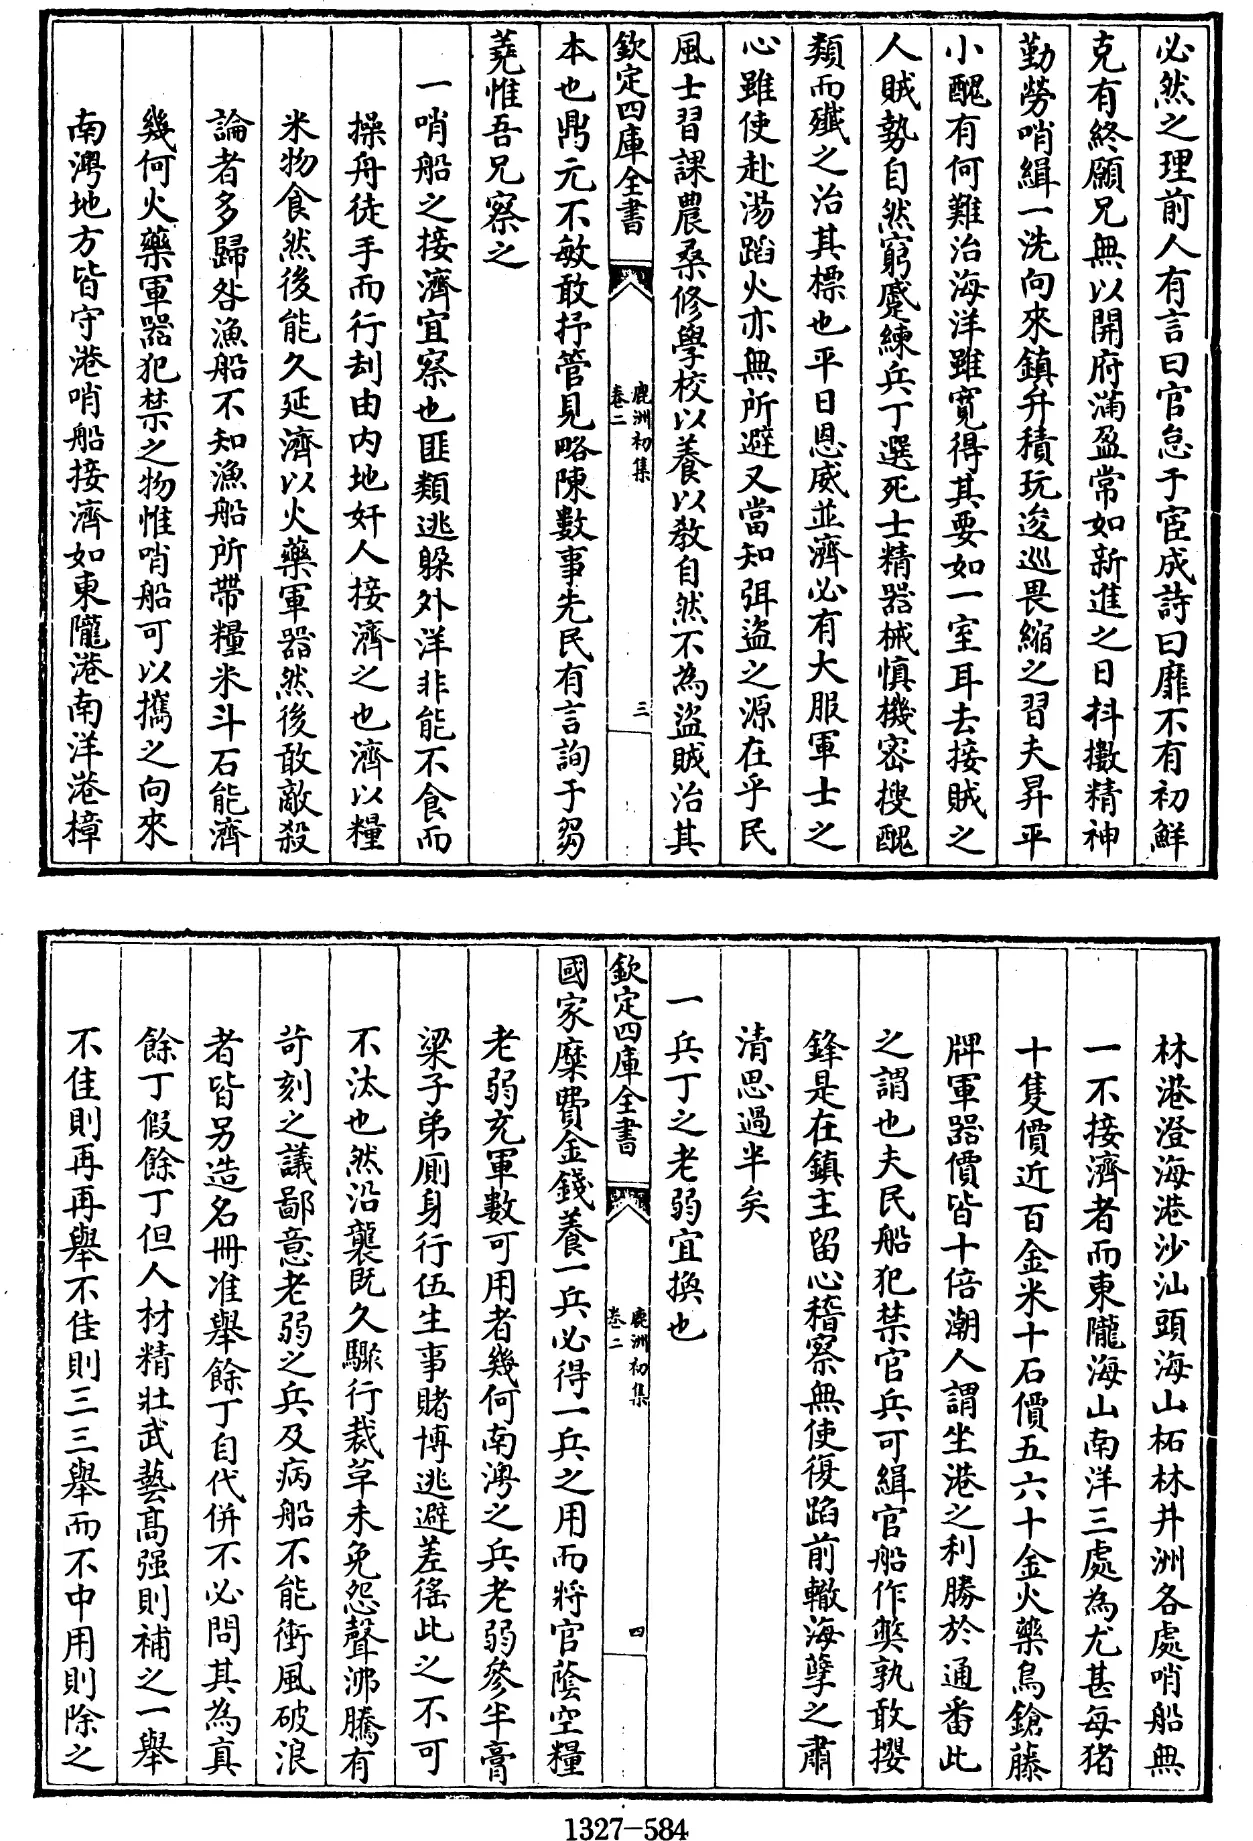 必然之理前人有言曰官怠于宦成詩曰靡不有初鮮
克有終願兄無以開府滿盈常如新進之日抖擻精神
勤勞哨緝一洗向來鎮弁積玩逡巡畏縮之習夫昇平
小醜有何難治海洋雖寛得其要如一室耳去接賊之
人賊勢自然窮蹙練兵丁選死士精器械慎機密搜醜
類而殲之治其標也平日恩威並濟必有大服軍士之
心雖使赴湯蹈火亦無所避又當知弭盜之源在乎民
風士習課農桑修學校以養以教自然不為盜賊治其
欽定四庫全書
鹿洲初集
卷二
三
本也鼎元不敏敢抒管見略陳數事先民有言詢于芻
蕘惟吾兄察之
一哨船之接濟宜察也匪類逃躲外洋非能不食而
操舟徒手而行刦由内地奸人接濟之也濟以糧
米物食然後能久延濟以火藥軍器然後敢敵殺
論者多歸咎漁船不知漁船所帶糧米斗石能濟
幾何火藥軍器犯禁之物惟哨船可以攜之向來
南澳地方皆守港哨船接濟如東隴港南洋港樟
林港澄海港沙汕頭海山柘林井洲各處哨船無
一不接濟者而東隴海山南洋三處為尤甚每猪
十隻價近百金米十石價五六十金火藥鳥鎗藤
牌軍器價皆十倍潮人謂坐港之利勝於通番此
之謂也夫民船犯禁官兵可緝官船作弊孰敢攖
鋒是在鎮主留心稽察無使復蹈前轍海孽之肅
清思過半矣
一兵丁之老弱宜換也
欽定四庫全書
鹿洲初集
卷二
四
國家糜費金錢養一兵必得一兵之用而將官蔭空糧
老弱充軍數可用者幾何南澳之兵老弱參半膏
梁子弟厠身行伍生事賭博逃避差徭此之不可
不汰也然沿襲既久驟行裁革未免怨聲沸騰有
苛刻之議鄙意老弱之兵及病船不能衝風破浪
者皆另造名冊准舉餘丁自代併不必問其為真
餘丁假餘丁但人材精壯武藝髙强則補之一舉
不佳則再再舉不佳則三三舉而不中用則除之
1327-584